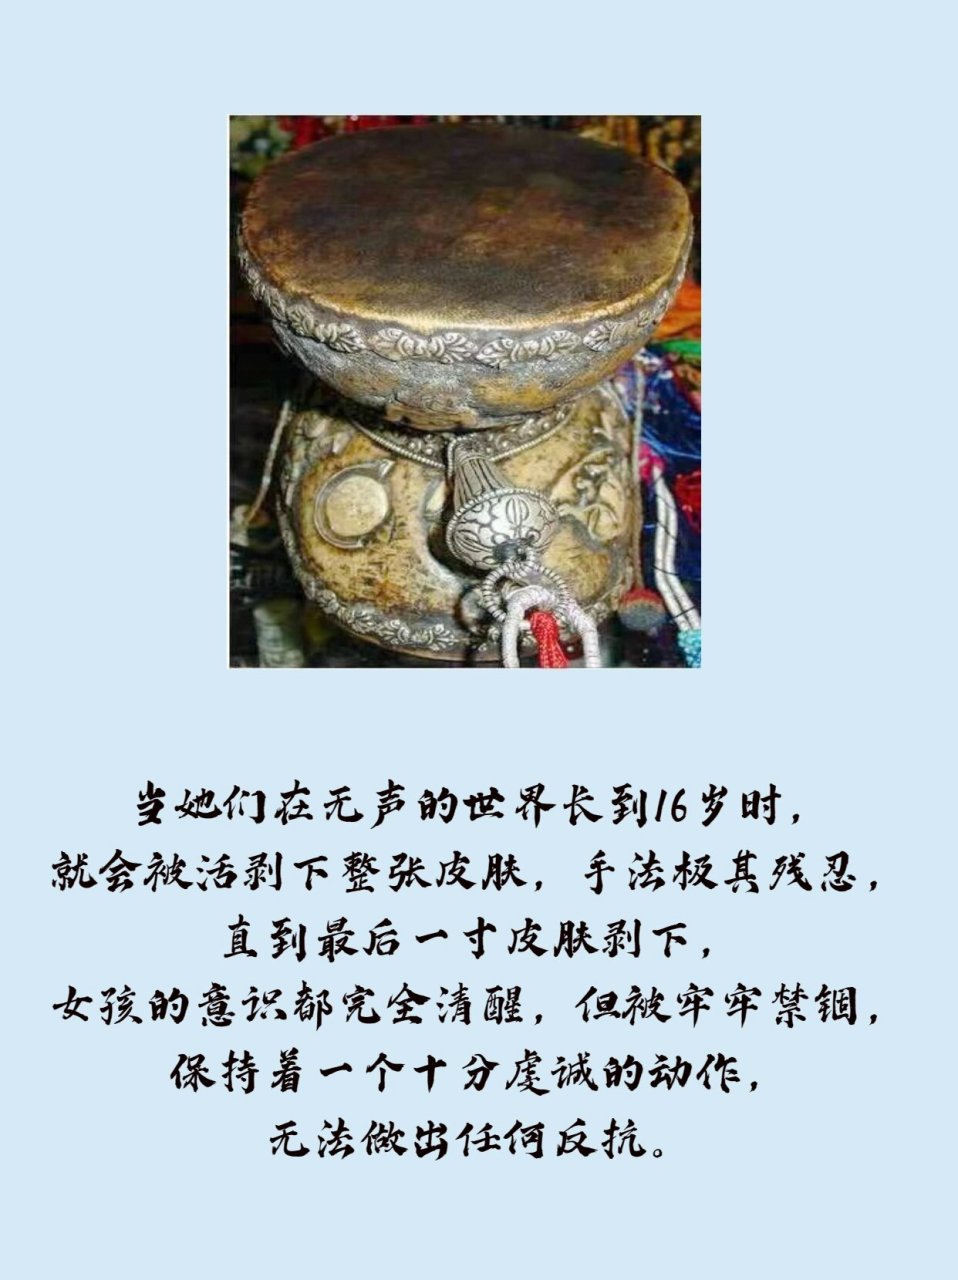 当她们在无声的世界长到16岁时，
就会被活剥下整张皮肤，手法极其残忍，
直到最后一寸皮肤剥下，
女孩的意识都完全清醒，但被牢牢禁锢，
保持着一个十分虔诚的动作，
无法做出任何反抗。